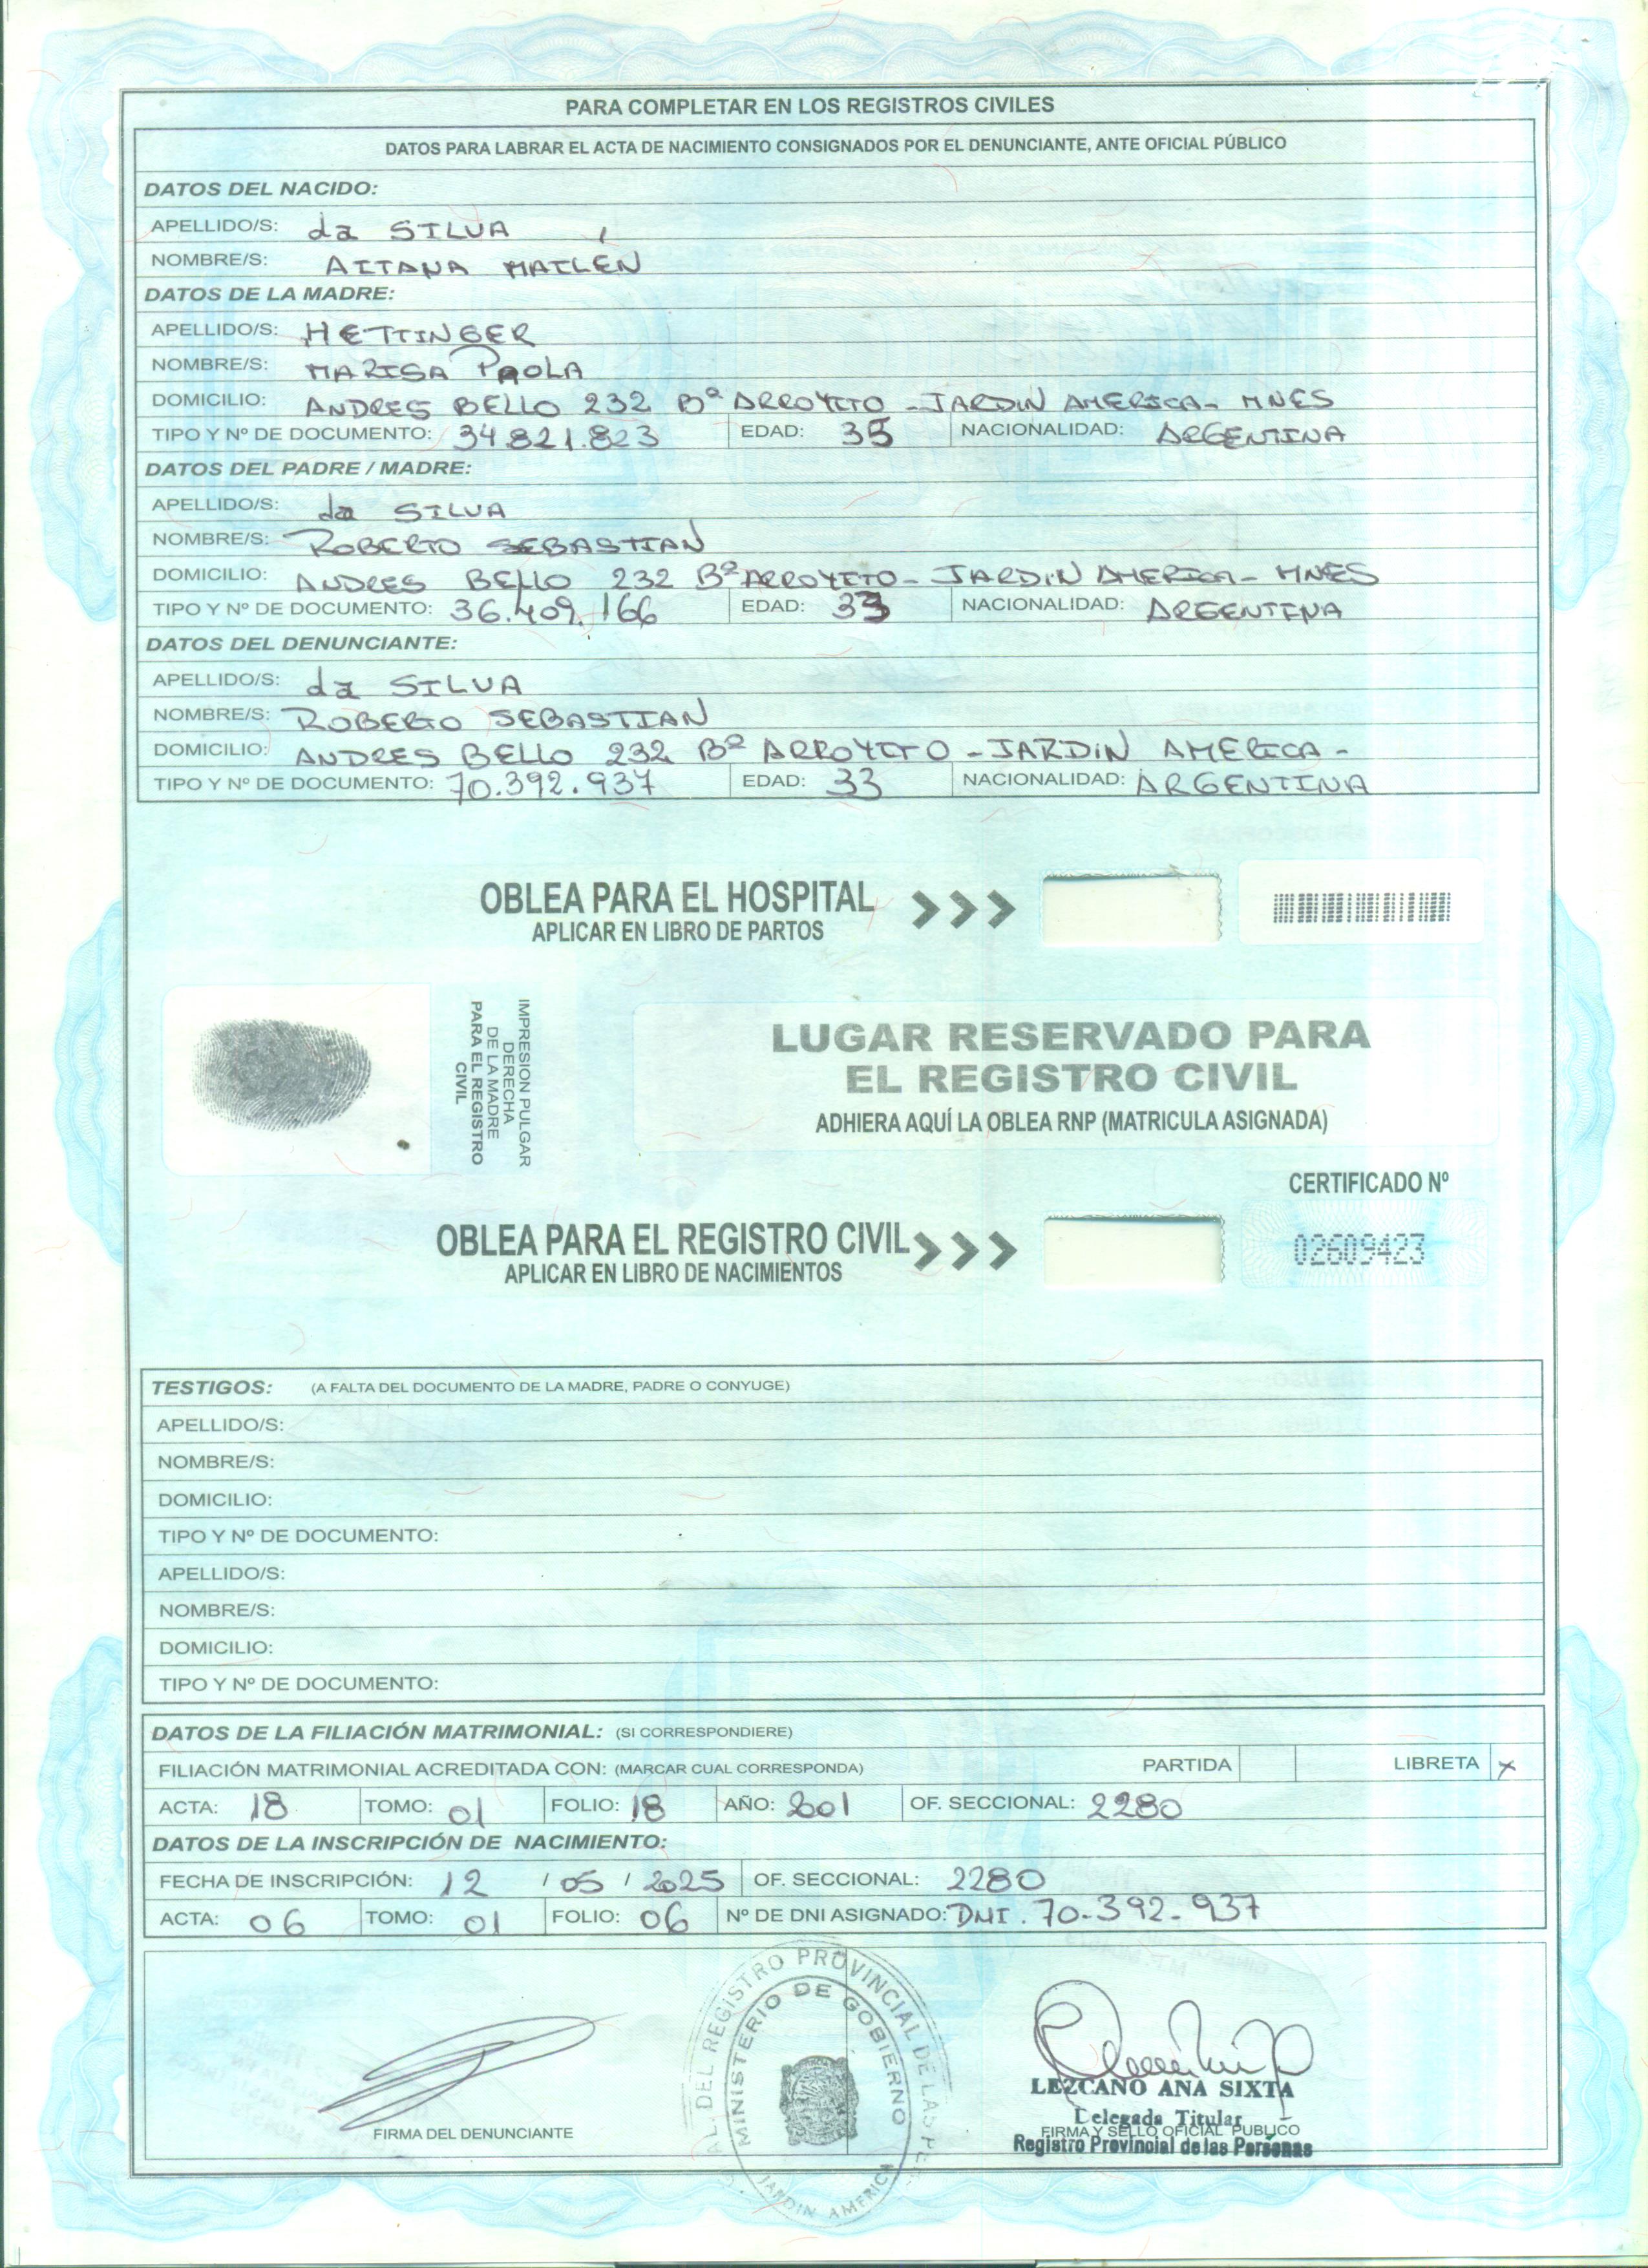 PARA COMPLETAR EN LOS REGISTROS CIVILES
DATOS PARA LABRAR EL ACTA DE NACIMIENTO CONSIGNADOS POR EL DENUNCIANTE, ANTE OFICIAL PÚBLICO
DATOS DEL NACIDO:
APELLIDO/S: da SILVA
NOMBRE/S: AITANA MAILÉN
DATOS DE LA MADRE:
APELLIDO/S: HETTINGER
NOMBRE/S: MARISA PAOLA
DOMICILIO: ANDRES BELLO 232 Bº ARROYITO - JARDIN AMERICA - MNES
TIPO Y Nº DE DOCUMENTO: 34.821.823 EDAD: 35 NACIONALIDAD: ARGENTINA
DATOS DEL PADRE / MADRE:
APELLIDO/S: da SILVA
NOMBRE/S: ROBERTO SEBASTIAN
DOMICILIO: ANDRES BELLO 232 Bº ARROYITO - JARDIN AMERICA - MNES
TIPO Y Nº DE DOCUMENTO: 36.409.166 EDAD: 33 NACIONALIDAD: ARGENTINA
DATOS DEL DENUNCIANTE:
APELLIDO/S: da SILVA
NOMBRE/S: ROBERTO SEBASTIAN
DOMICILIO: ANDRES BELLO 232 Bº ARROYITO - JARDIN AMERICA -
TIPO Y Nº DE DOCUMENTO: 70.392.937 EDAD: 33 NACIONALIDAD: ARGENTINA
OBLEA PARA EL HOSPITAL >>>
APLICAR EN LIBRO DE PARTOS
IMPRESION PULGAR
DERECHA
DE LA MADRE
PARA EL REGISTRO
CIVIL
LUGAR RESERVADO PARA
EL REGISTRO CIVIL
ADHIERA AQUÍ LA OBLEA RNP (MATRICULA ASIGNADA)
CERTIFICADO Nº
OBLEA PARA EL REGISTRO CIVIL >>>
APLICAR EN LIBRO DE NACIMIENTOS
02609423
TESTIGOS: (A FALTA DEL DOCUMENTO DE LA MADRE, PADRE O CONYUGE)
APELLIDO/S:
NOMBRE/S:
DOMICILIO:
TIPO Y Nº DE DOCUMENTO:
APELLIDO/S:
NOMBRE/S:
DOMICILIO:
TIPO Y Nº DE DOCUMENTO:
DATOS DE LA FILIACIÓN MATRIMONIAL: (SI CORRESPONDIERE)
FILIACIÓN MATRIMONIAL ACREDITADA CON: (MARCAR CUAL CORRESPONDA) PARTIDA LIBRETA X
ACTA: 18 TOMO: 01 FOLIO: 18 AÑO: 201 OF. SECCIONAL: 2280
DATOS DE LA INSCRIPCIÓN DE NACIMIENTO:
FECHA DE INSCRIPCIÓN: 12 / 05 / 2025 OF. SECCIONAL: 2280
ACTA: 06 TOMO: 01 FOLIO: 06 Nº DE DNI ASIGNADO: DNI. 70.392.937
DEL REGISTRO PROVINCIAL DE LAS
MINISTERIO DE GOBIERNO
JARDIN AMERICA
FIRMA DEL DENUNCIANTE
LEZCANO ANA SIXTA
Delegada Titular
FIRMA Y SELLO OFICIAL PUBLICO
Registro Provincial de las Personas